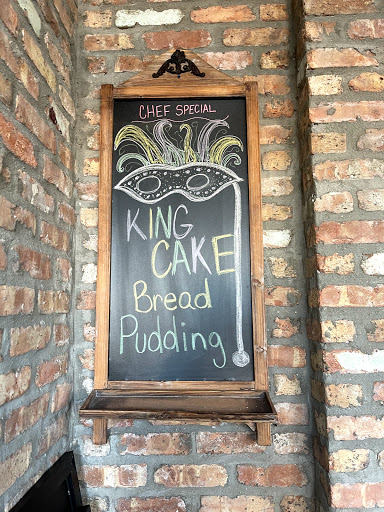 CHEF SPECIAL
KING
CAKE
Bread
Pudding